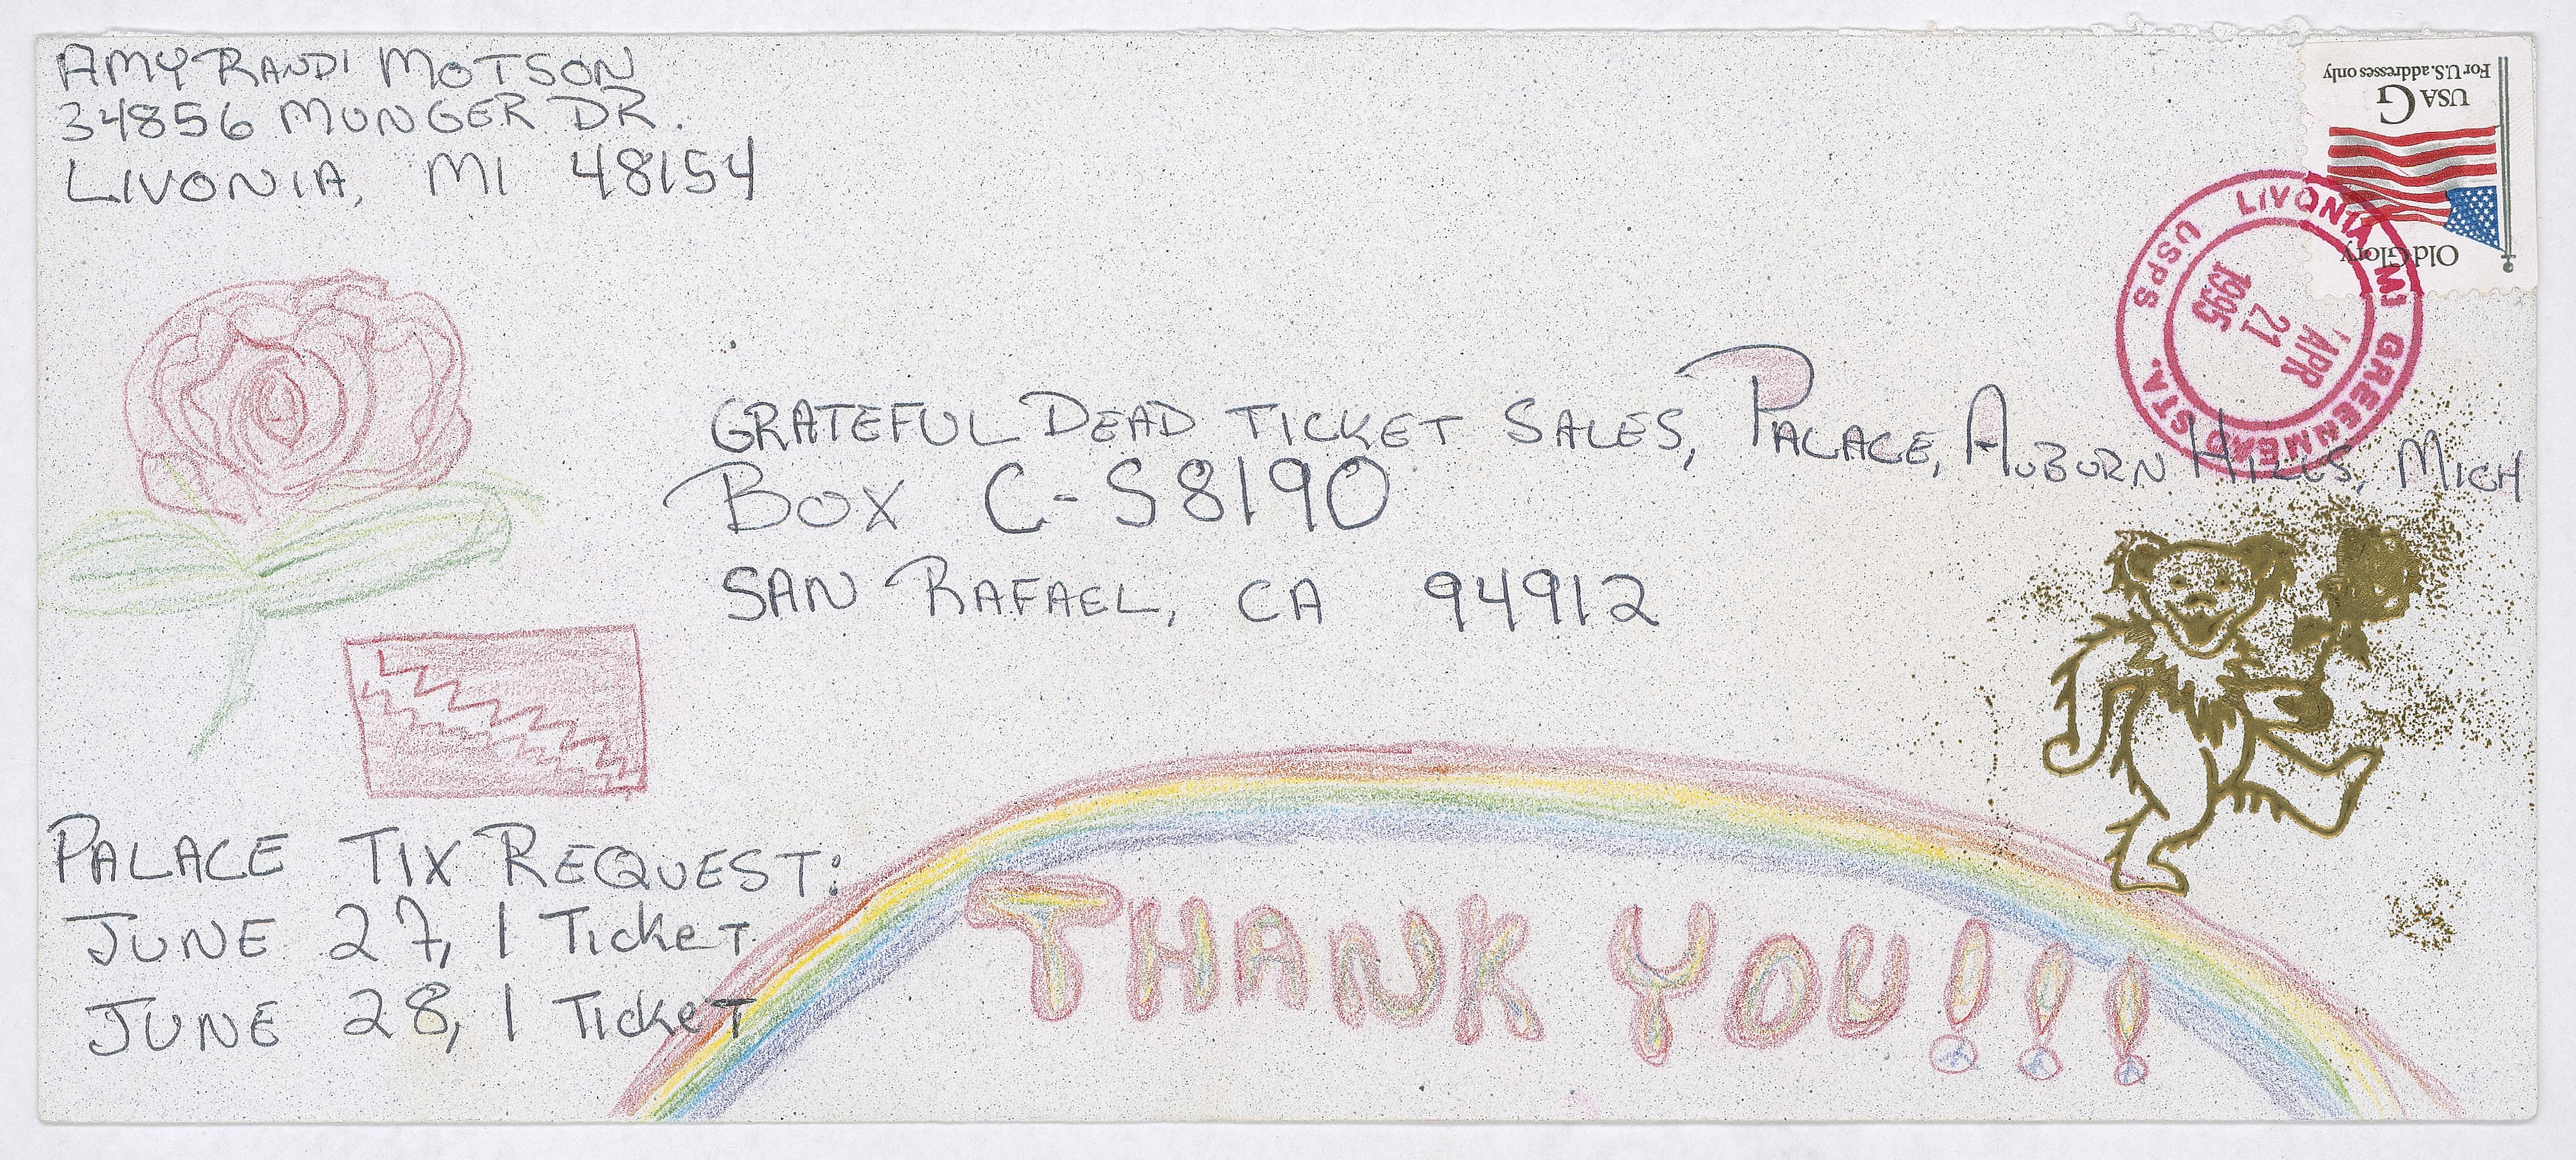 AMY RANDI MOTSON
34856 MUNGER DR.
LIVONIA, MI 48154
For U.S. addresses only
USA G
Old Glory
LIVONIA MI GREENMEAD STA. USPS
APR
21
1995
GRATEFUL DEAD TICKET SALES, PALACE, AUBURN HILLS, MICH
BOX C-S8190
SAN RAFAEL, CA 94912
PALACE TIX REQUEST:
JUNE 27, 1 TICKET
JUNE 28, 1 TICKET
THANK YOU!!!